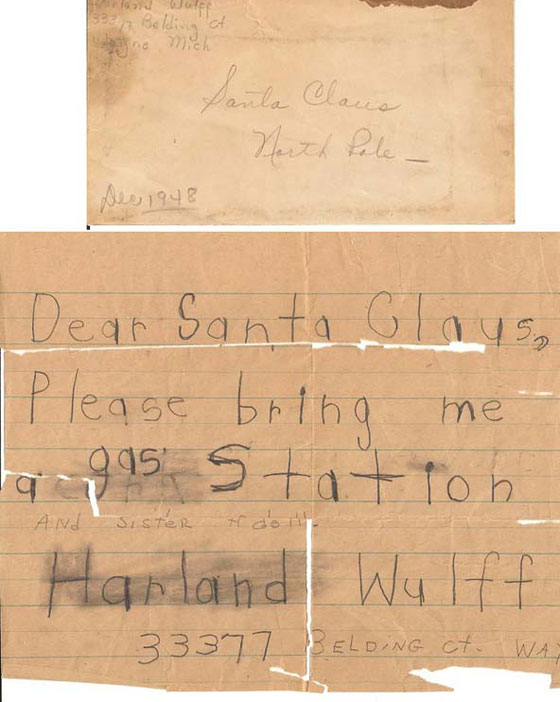 Harland Wulff
333 Belding Ct
Mich
Santa Claus
North Pole —
Dec 1948
Dear Santa Claus,
Please bring me
a gas Station
And SisTER A doll.
Harland Wulff
33377 BELDiNG CT. WAY